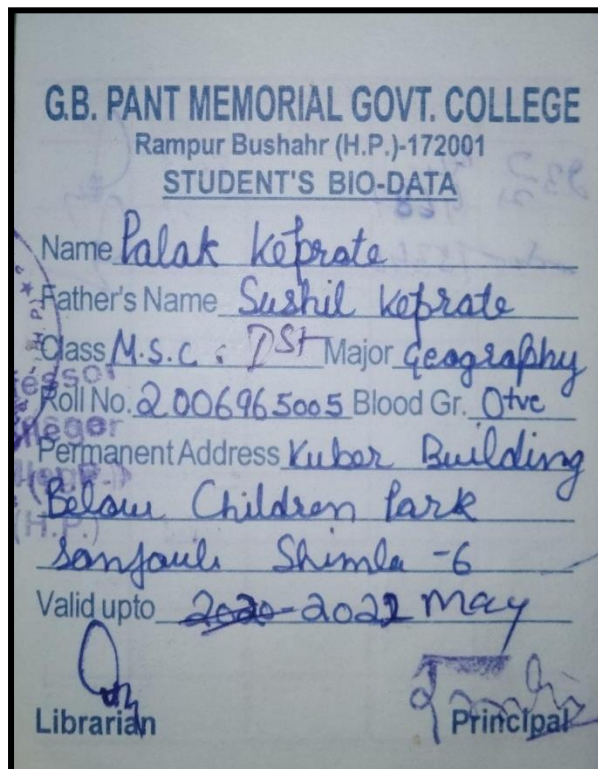 G.B. PANT MEMORIAL GOVT. COLLEGE
Rampur Bushahr (H.P.)-172001
STUDENT'S BIO-DATA
Name Palak Keprate
Father's Name Sushil Keprate
Class M.S.C. Ist Major Geography
Roll No. 2006965005 Blood Gr. O+ve
Permanent Address Kuber Building
Below Children Park
Sanjauli Shimla -6
Valid upto May
Librarian Principal